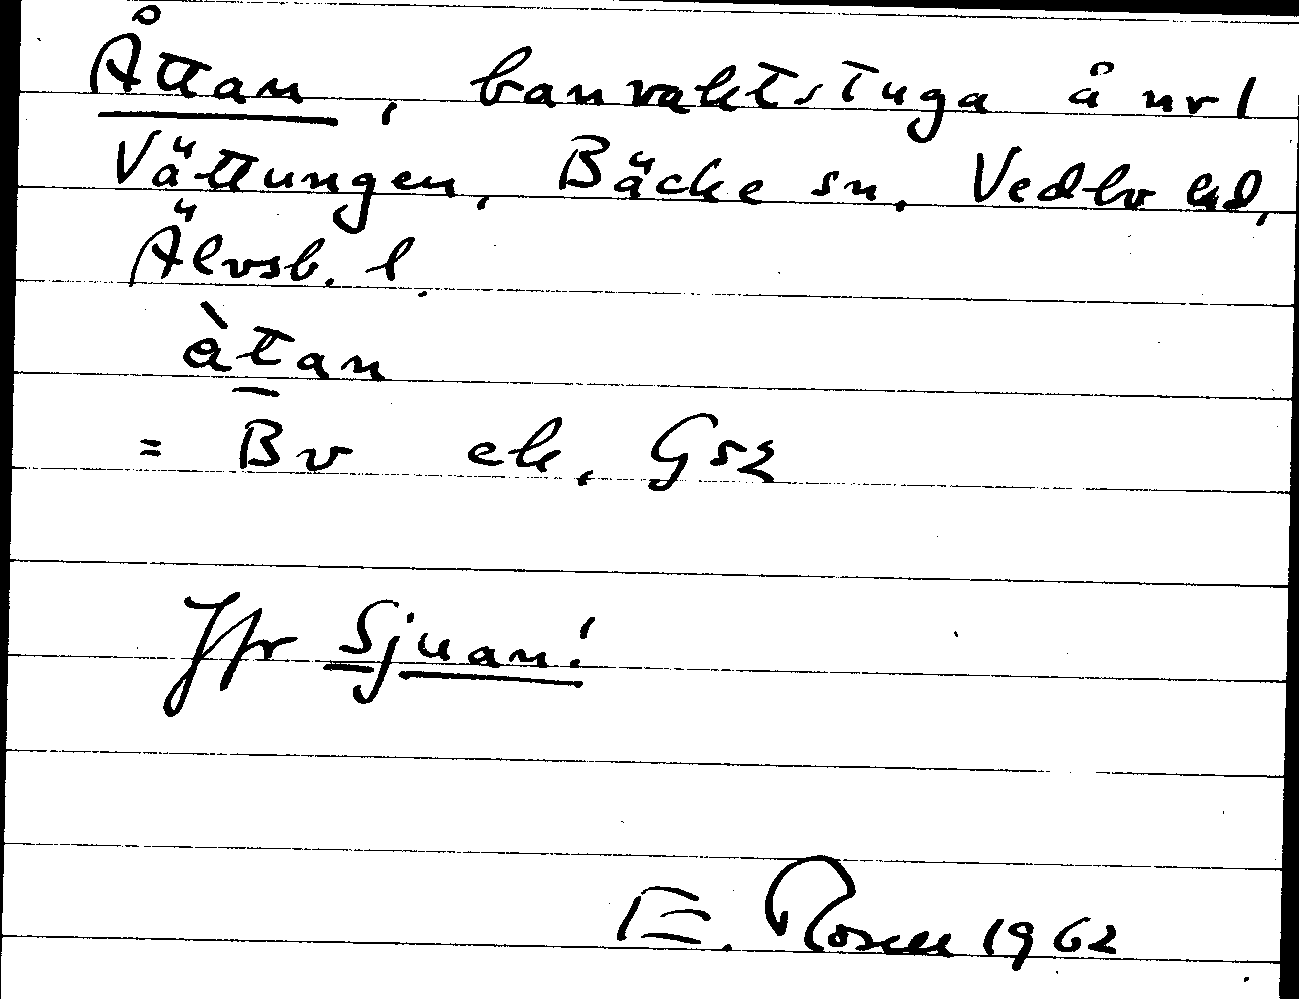 Åttan, banvaktstuga å nr 1
Vättungen, Bäcke sn, Vedbo hd,
Älvsb. l.
àtan
= Bv ek. Gsz
Jfr Sjuan!
E. Rosell 1962